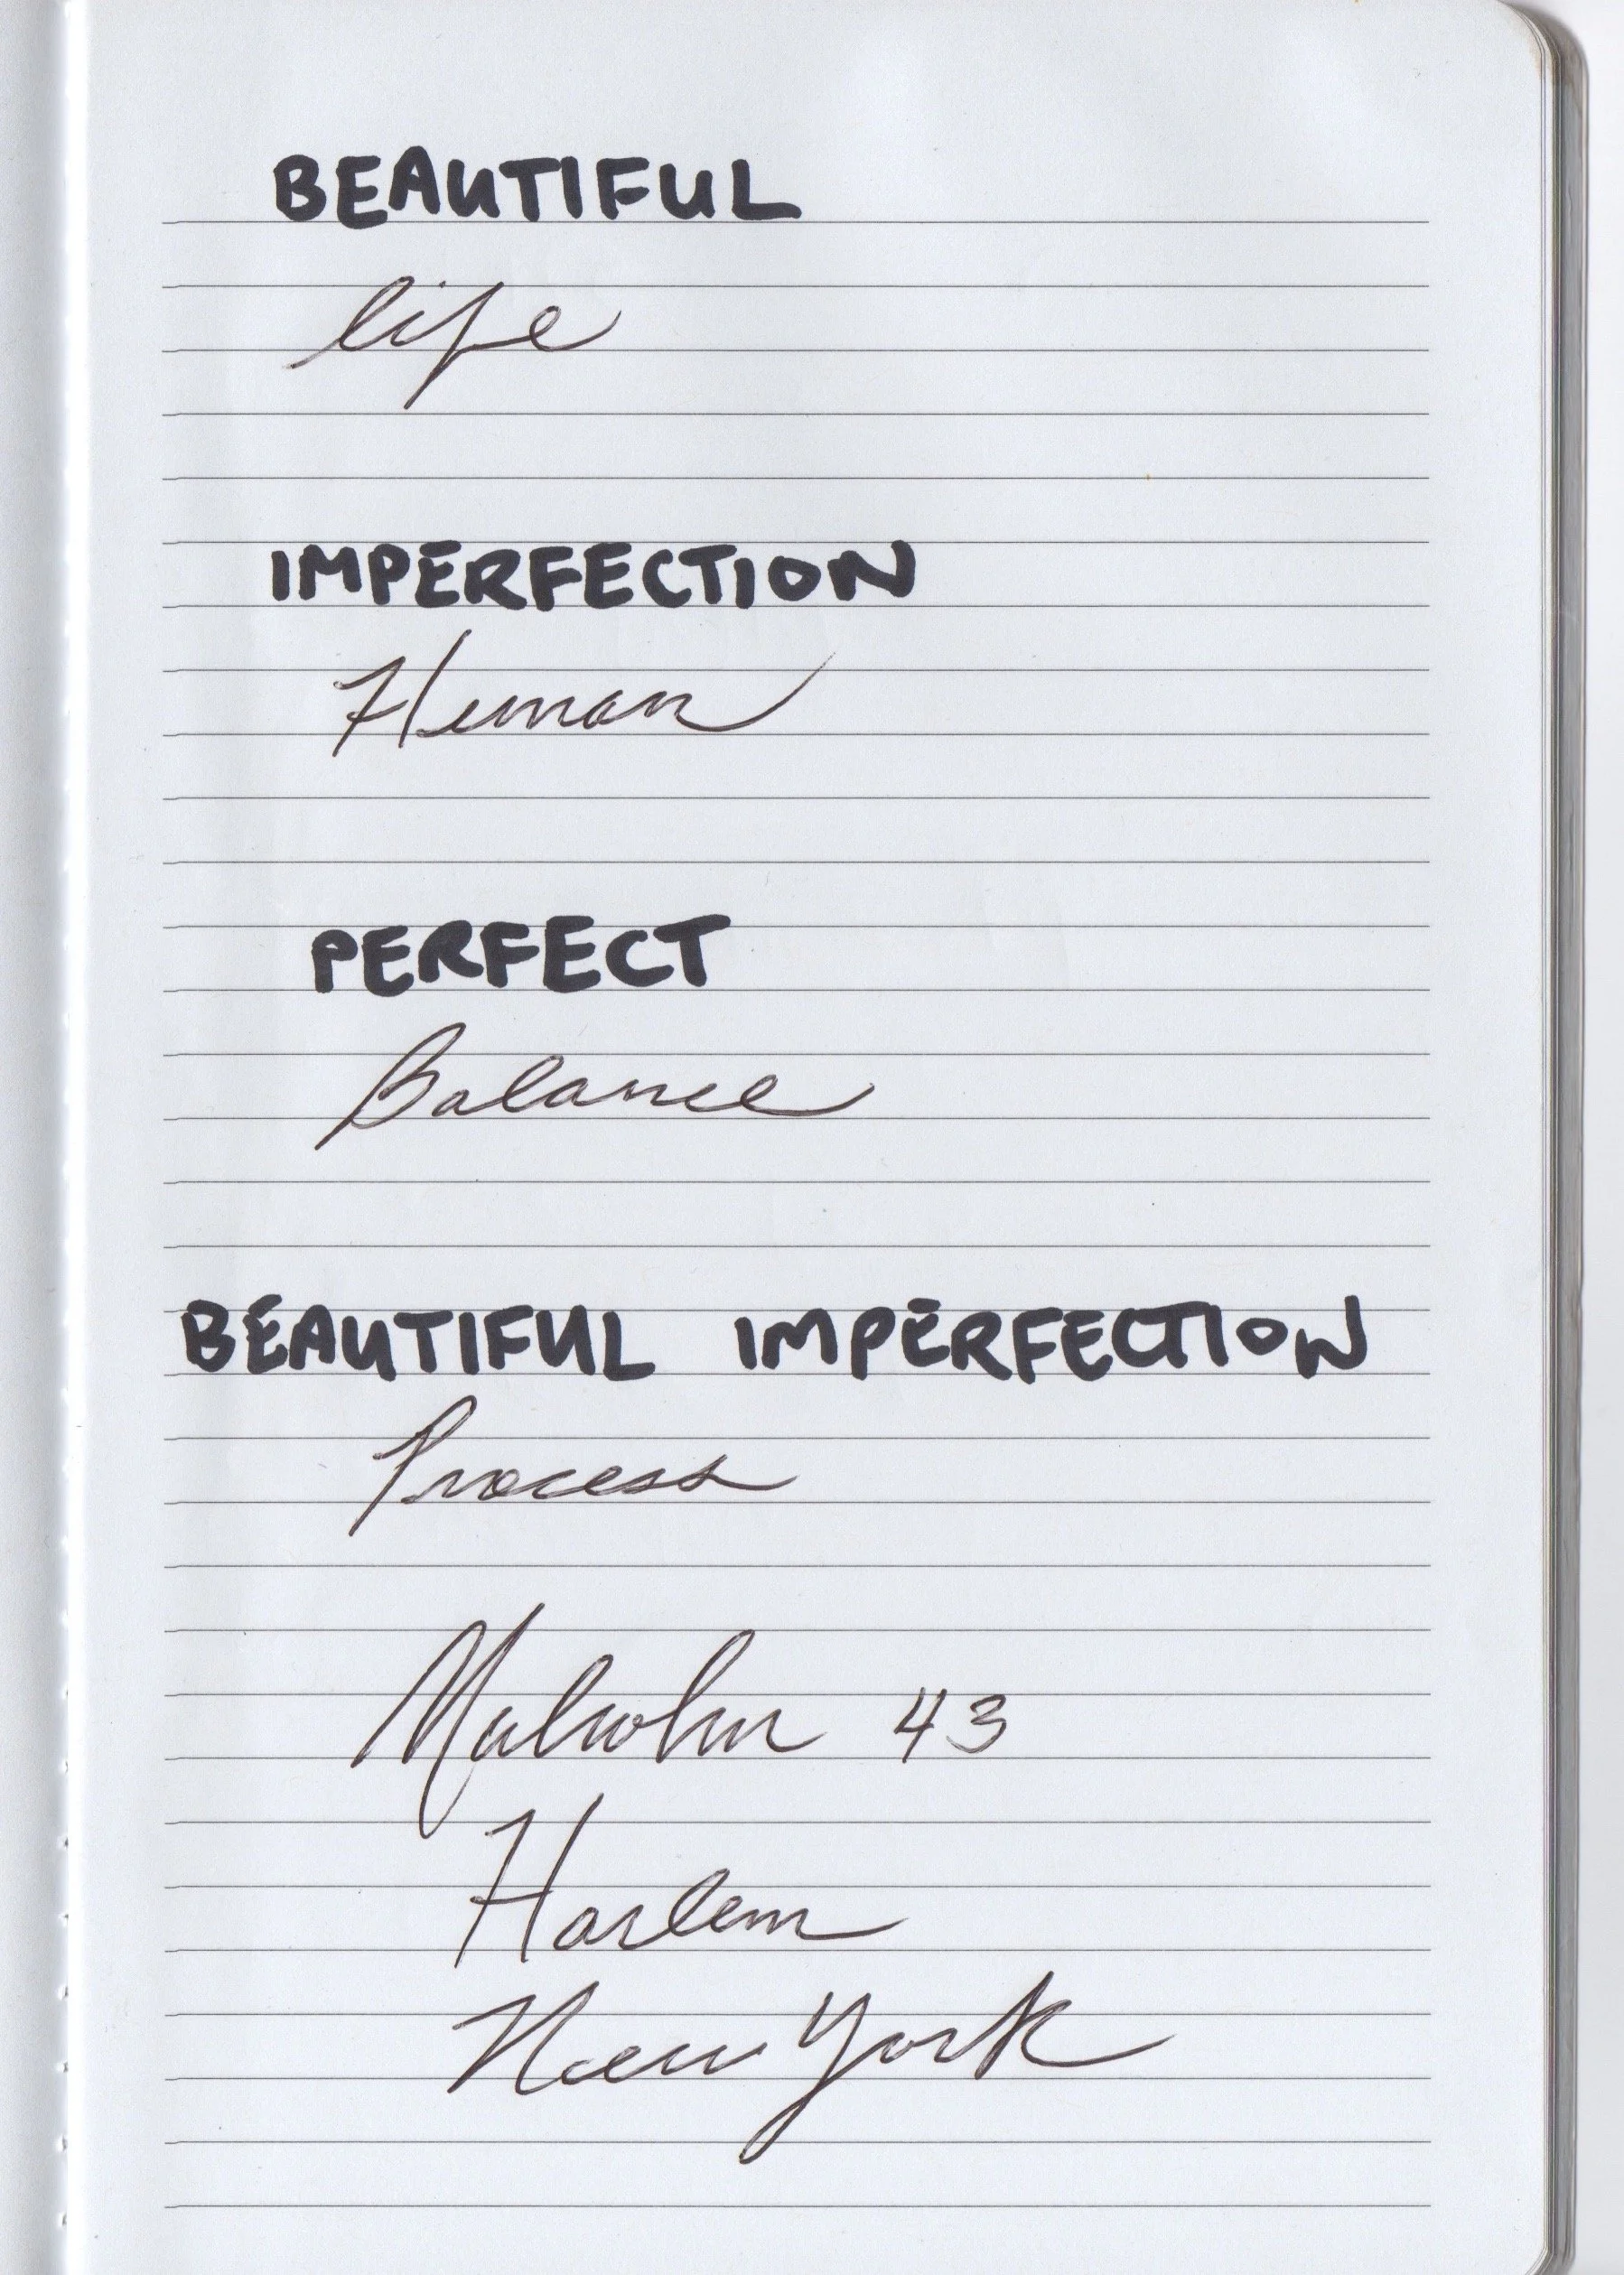 BEAUTIFUL
life
IMPERFECTION
Human
PERFECT
Balance
BEAUTIFUL IMPERFECTION
Process
43
Harlem
New York